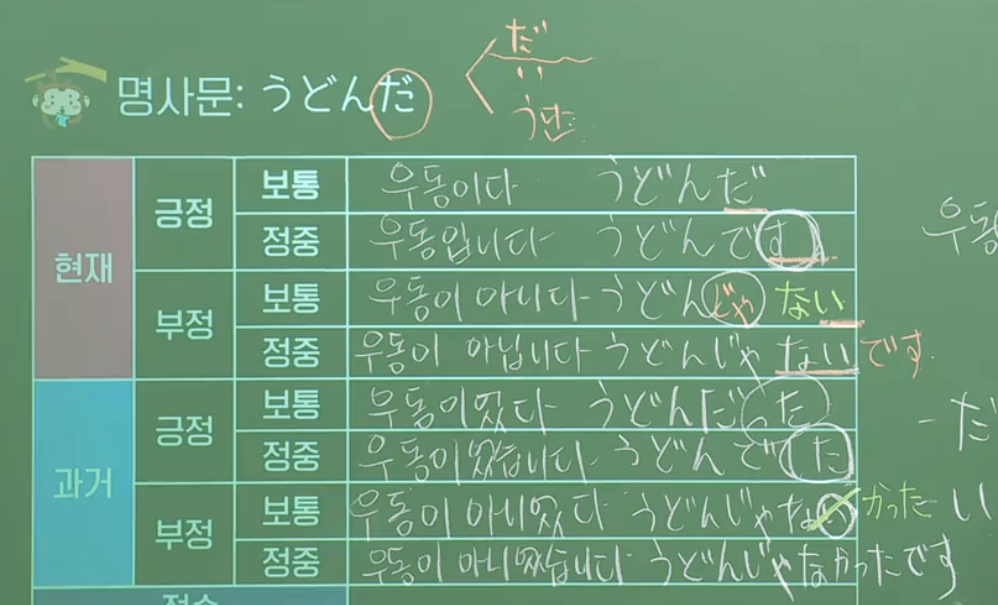 だ
명사문: うどんだ
현재 긍정 보통 우동이다 うどんだ
정중 우동입니다 うどんです
부정 보통 우동이 아니다 うどんじゃ ない
정중 우동이 아닙니다 うどんじゃ ないです
과거 긍정 보통 우동이었다 うどんだった
정중 우동이었습니다 うどんでした
부정 보통 우동이 아니었다 うどんじゃない かった い
정중 우동이 아니었습니다 うどんじゃなかったです
우동
- だ